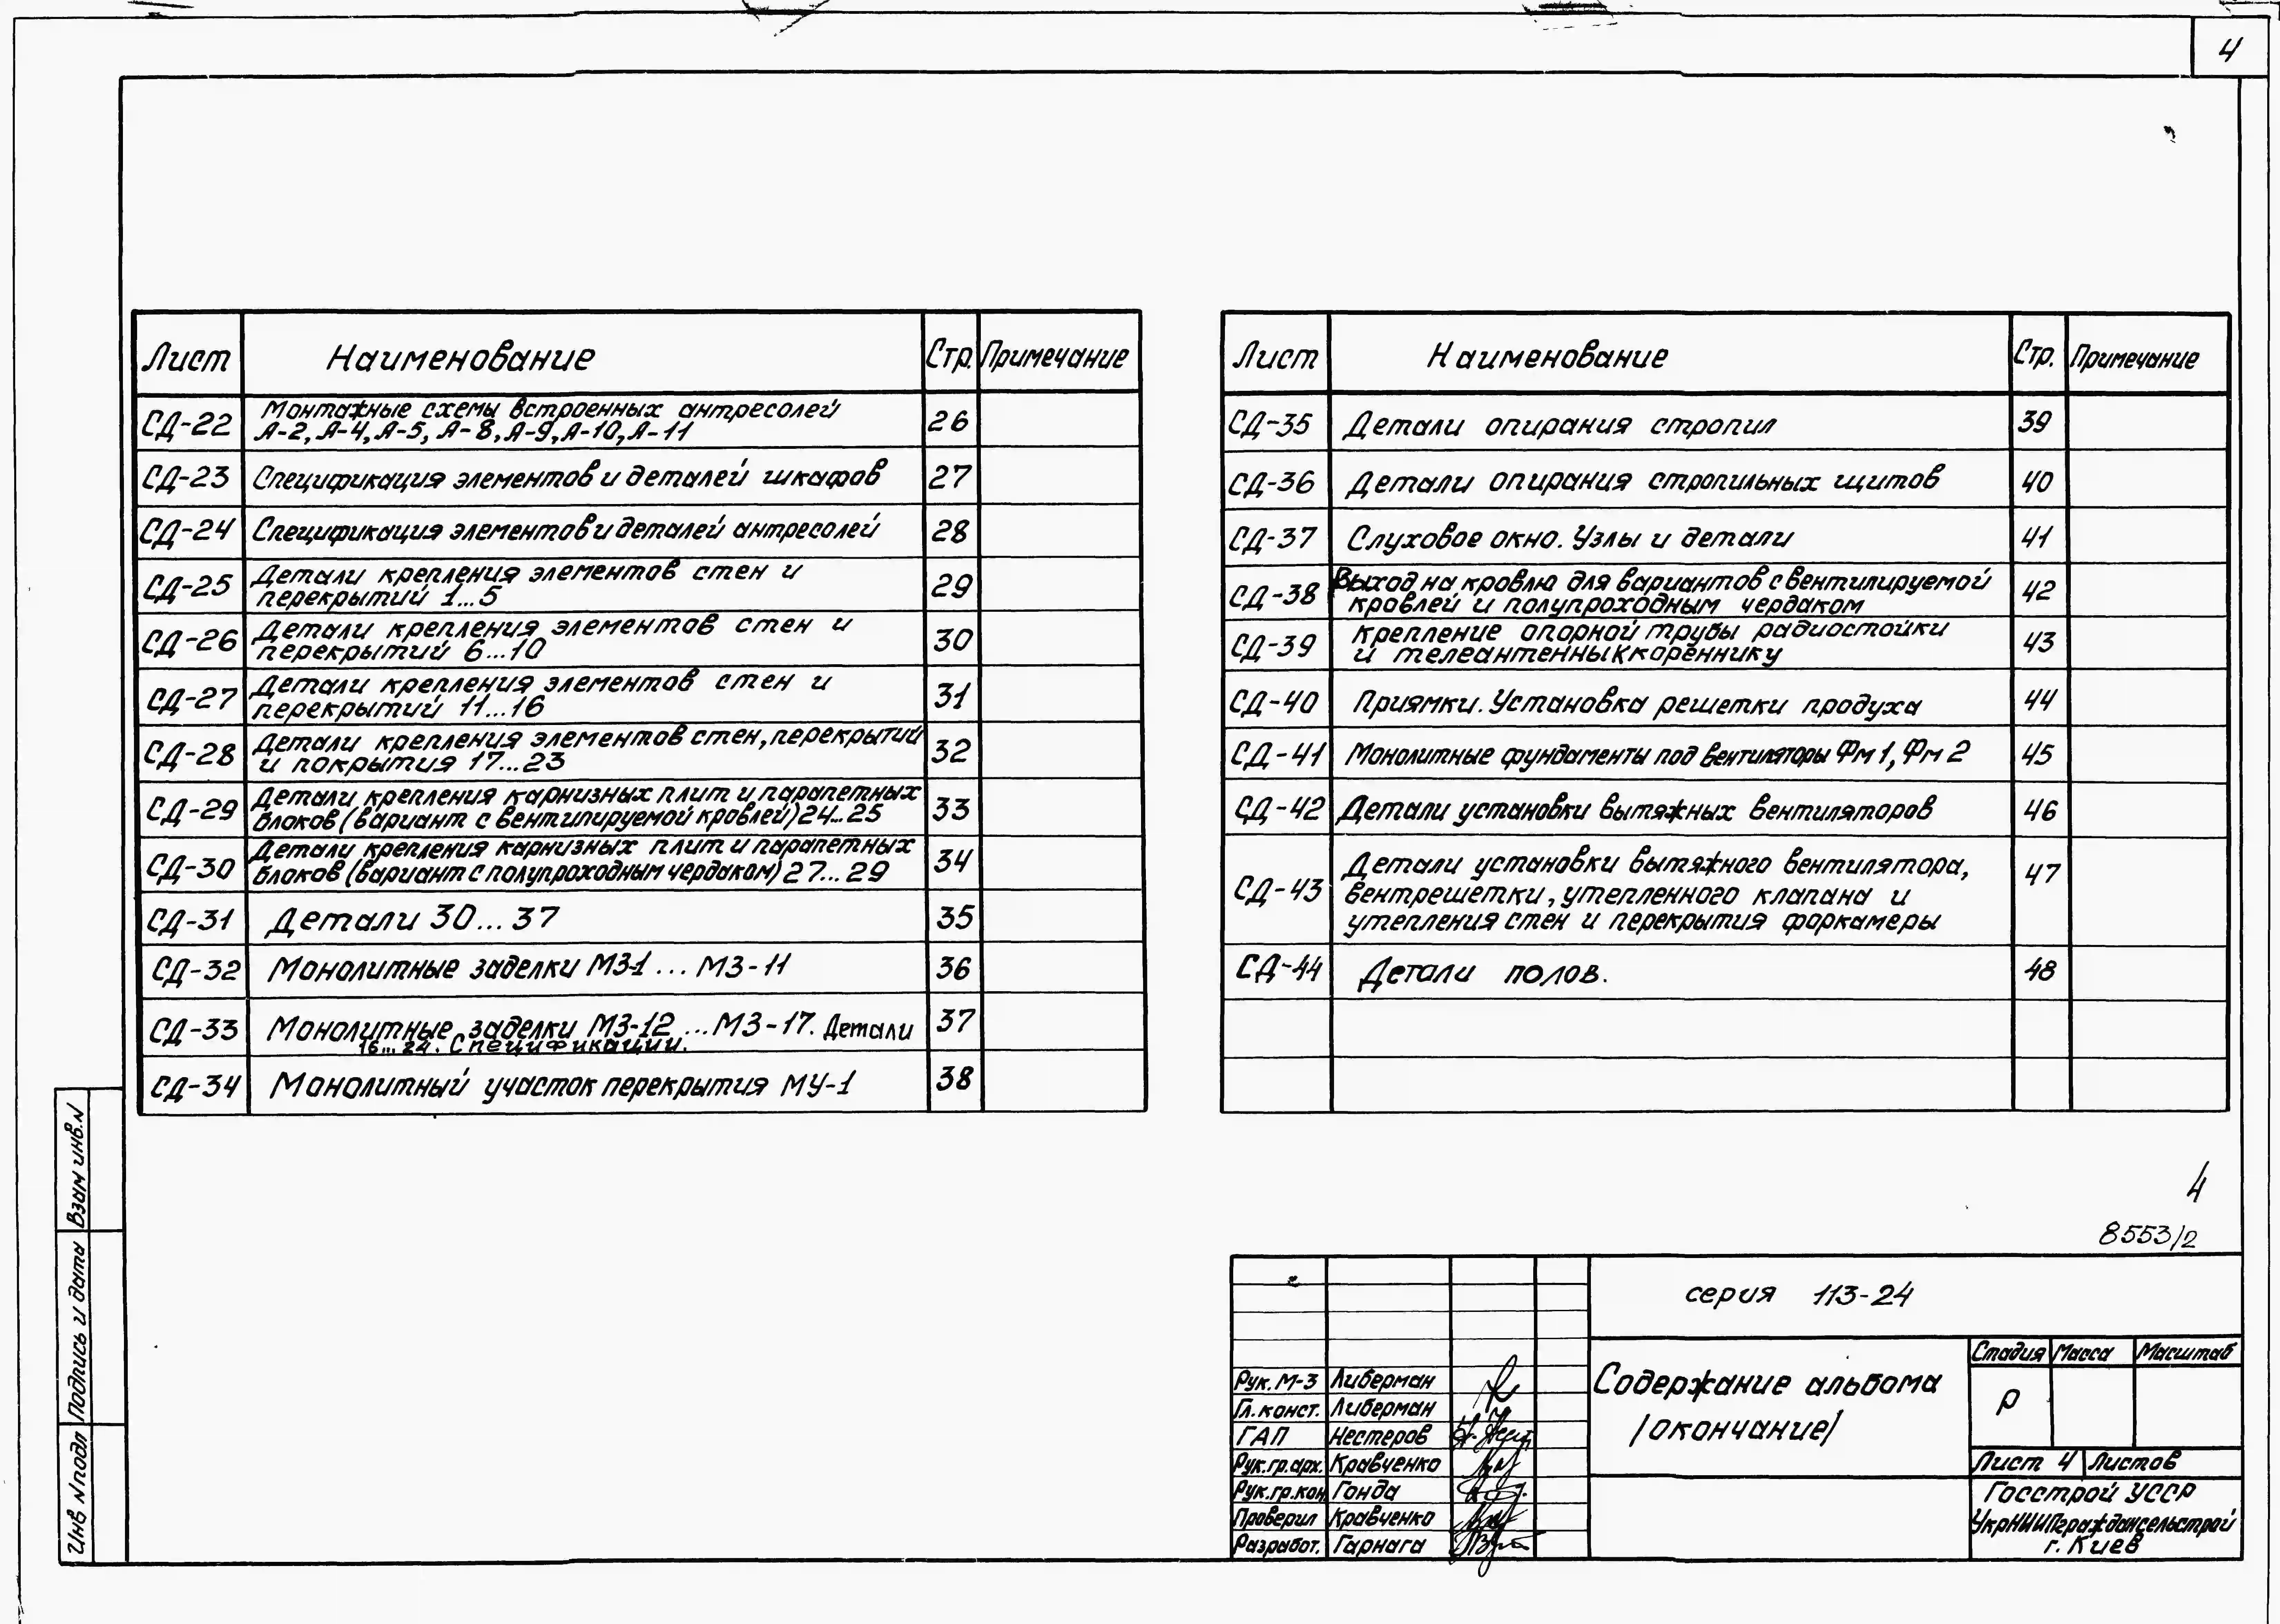 4
Лист Наименование Стр. Примечание
СД-22 Монтажные схемы встроенных антресолей
А-2, А-4, А-5, А-8, А-9, А-10, А-11 26
СД-23 Спецификация элементов и деталей шкафов 27
СД-24 Спецификация элементов и деталей антресолей 28
СД-25 Детали крепления элементов стен и
перекрытий 1...5 29
СД-26 Детали крепления элементов стен и
перекрытий 6...10 30
СД-27 Детали крепления элементов стен и
перекрытий 11...16 31
СД-28 Детали крепления элементов стен, перекрытий
и покрытия 17...23 32
СД-29 Детали крепления карнизных плит и парапетных
блоков (вариант с вентилируемой кровлей) 24...25 33
СД-30 Детали крепления карнизных плит и парапетных
блоков (вариант с полупроходным чердаком) 27...29 34
СД-31 Детали 30...37 35
СД-32 Монолитные заделки МЗ-1 ... МЗ-11 36
СД-33 Монолитные заделки МЗ-12 ... МЗ-17. Детали 37
16...24. Спецификации.
СД-34 Монолитный участок перекрытия МУ-1 38
Лист Наименование Стр. Примечание
СД-35 Детали опирания стропил 39
СД-36 Детали опирания стропильных щитов 40
СД-37 Слуховое окно. Узлы и детали 41
СД-38 Выход на кровлю для вариантов с вентилируемой
кровлей и полупроходным чердаком 42
СД-39 Крепление опорной трубы радиостойки
и телеантенны к кореннику 43
СД-40 Приямки. Установка решетки продуха 44
СД-41 Монолитные фундаменты под вентиляторы Фм 1, Фм 2 45
СД-42 Детали установки вытяжных вентиляторов 46
СД-43 Детали установки вытяжного вентилятора,
вентрешетки, утепленного клапана и
утепления стен и перекрытия форкамеры 47
СД-44 Детали полов. 48
4
8553/2
серия 113-24
Содержание альбома
/окончание/
Стадия Масса Масштаб
Р
Лист 4 Листов
Госстрой УССР
УкрНИИПграждансельстрой
г. Киев
Рук. М-3 Либерман
Гл. конст. Либерман
ГАП Нестеров
Рук. гр. арх. Кравченко
Рук. гр. кон. Гонда
Проверил Кравченко
Разработ. Гарнага
Взам инв. N
Подпись и дата
Инв N подл